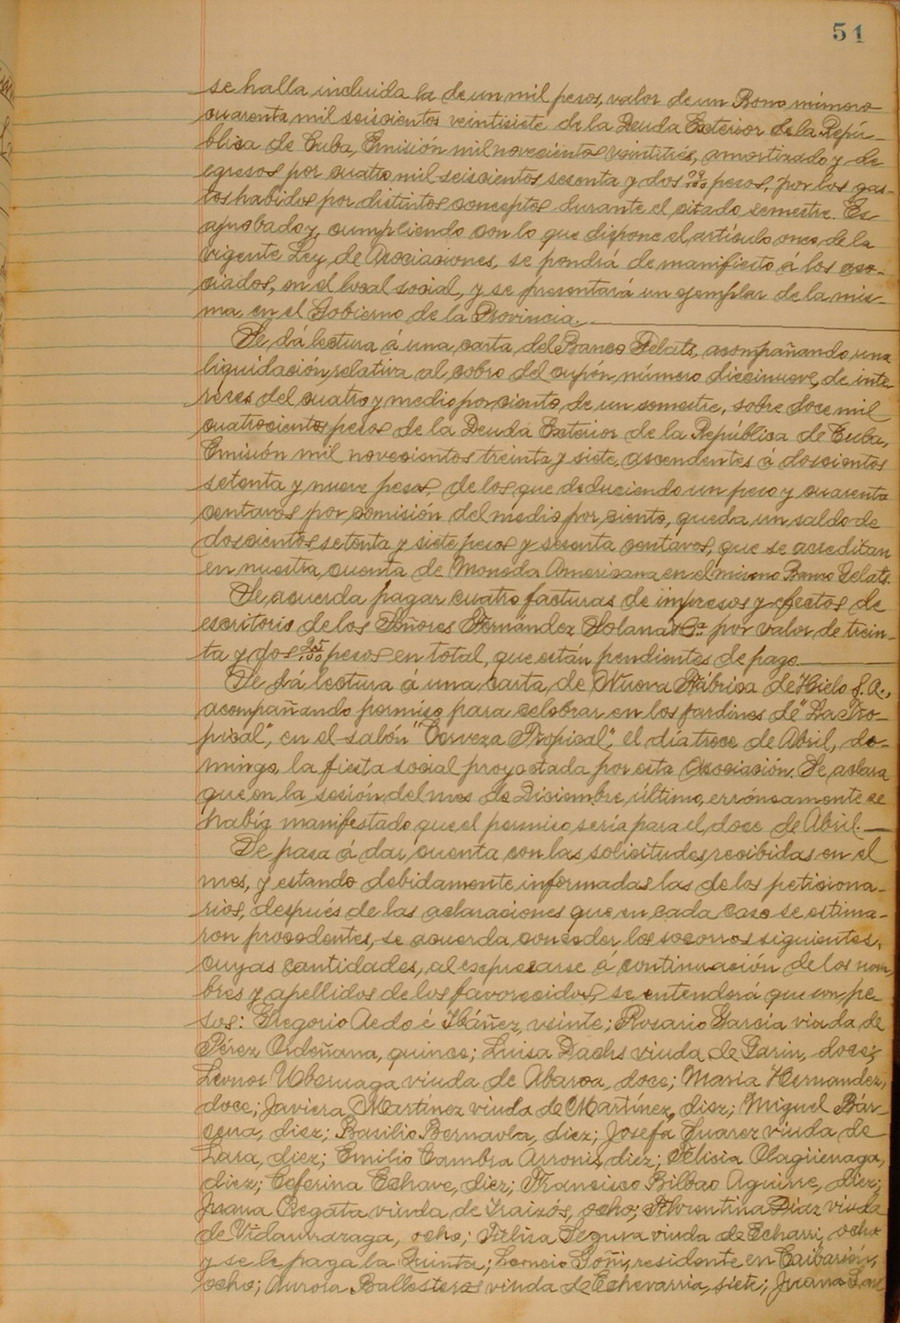 51
se halla incluida la de un mil pesos, valor de un Bono número
cuarenta mil seiscientos veintisiete de la Deuda Exterior de la Repú-
blica de Cuba, Emisión mil novecientos veintitrés, amortizado y de
egresos por cuatro mil seiscientos sesenta y dos pesos, por los gas-
tos habidos por distintos conceptos durante el citado semestre. Es
aprobado y cumpliendo con lo que dispone el artículo once de la
vigente Ley de Asociaciones, se pondrá de manifiesto á los aso-
ciados, en el local social, y se presentará un ejemplar de la mis-
ma en el Gobierno de la Provincia.
Se dá lectura á una carta del Banco Gelats, acompañando una
liquidación relativa al cobro del cupón número diecinueve, de inte
reses del cuatro y medio por ciento de un semestre, sobre doce mil
cuatrocientos pesos de la Deuda Exterior de la República de Cuba,
Emisión mil novecientos treinta y siete, ascendentes á doscientos
setenta y nueve pesos, de los que deduciendo un peso y cuarenta
centavos por comisión del medio por ciento, queda un saldo de
doscientos setenta y siete pesos y sesenta centavos, que se acreditan
en nuestra cuenta de Moneda Americana en el mismo Banco Gelats.
Se acuerda pagar cuatro facturas de impresos y efectos de
escritorio de los Señores Fernández Solana y Cª por valor de trein-
ta y dos pesos en total, que están pendientes de pago.
Se dá lectura á una carta de Nueva Fábrica de Hielo S. A.,
acompañando permiso para celebrar en los jardines de "La Tro-
pical", en el salón "Cerveza Tropical", el día trece de Abril, do-
mingo, la fiesta social proyectada por esta Asociación. Se aclara
que en la sesión del mes de Diciembre último, erróneamente se
había manifestado que el permiso sería para el doce de Abril.
Se pasa á dar cuenta con las solicitudes recibidas en el
mes, y estando debidamente informadas las de los peticiona-
rios, después de las aclaraciones que en cada caso se estima-
ron procedentes, se acuerda conceder los socorros siguientes,
cuyas cantidades, al expresarse á continuación de los nom
bres y apellidos de los favorecidos, se entenderá que son pe-
sos: Gregorio Aedo é Ibáñez, veinte; Rosario García viuda de
Pérez Ordeñana, quince; Luisa Dachs viuda de Garin, doce;
Leonor Uberuaga viuda de Abaroa, doce; María Hernandez,
doce; Javiera Martínez viuda de Martínez, diez; Miguel Bár-
cena, diez; Basilio Bernaola, diez; Josefa Juarez viuda de
Lara, diez; Emilio Cambra Arronis, diez; Alicia Olagüenaga,
diez; Ceferina Echave, diez; Francisco Bilbao Aguirre, diez;
Juana Regata viuda de Iraizos, ocho; Florentina Diaz viuda
de Vidaurrazaga, ocho; Segura viuda de Echarri, ocho
y se le paga la Quinta; Leoncio Goñi, residente en Caibarién,
ocho; Aurora Ballesteros viuda de Echevarria, siete; Juana